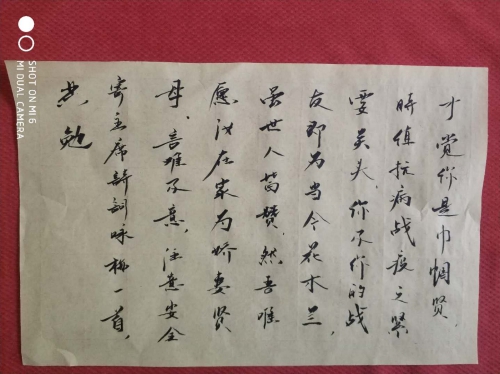 才觉你是巾帼贤，
時值抗病战疫之紧
要关头，你和你的战
友即为当今花木兰，
虽世人皆赞，然吾唯
愿汝在家为娇妻贤
母，言难及意，注意安全
寄主席新词咏梅一首，
共勉
SHOT ON MI 6
MI DUAL CAMERA